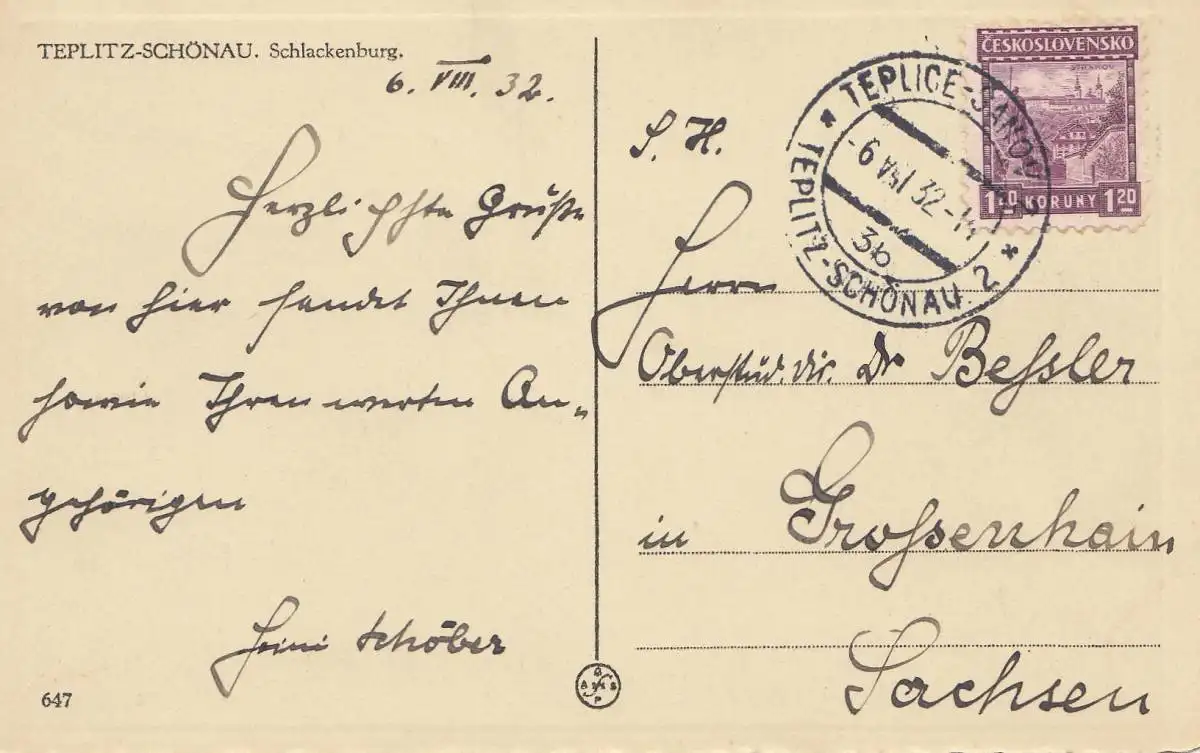 TEPLITZ-SCHÖNAU. Schlackenburg.
6. VIII. 32.
Herzlichste Grüße
von hier sendet Ihnen
sowie Ihren werten An-
gehörigen
Schöber
647
ČESKOSLOVENSKO
1 20 KORUNY 1 20
TEPLICE-ŠANOV 2
-6 VIII 32-14
3b
TEPLITZ-SCHÖNAU 2
S. H.
Herrn
Oberstud. dir. Dr Beſsler
in Groſsenhain
Sachsen